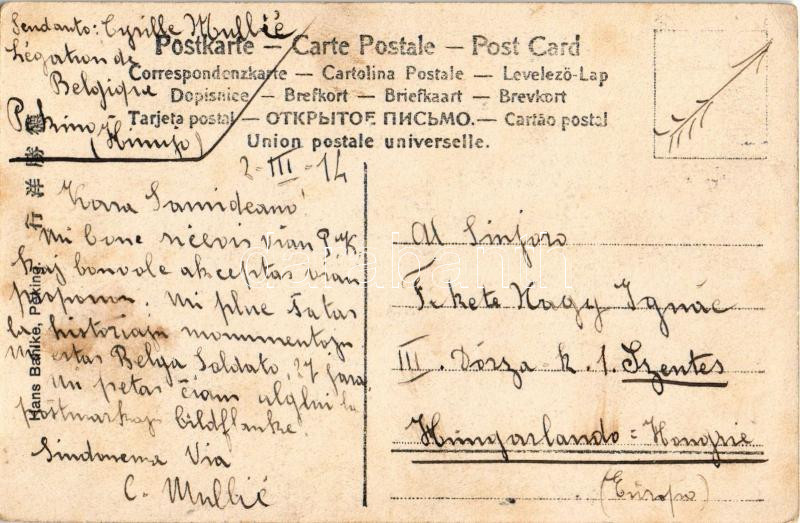 Sendanto: Cyrille Mullié
Légation de
Belgique
Pekino
(Hinujo)
Postkarte – Carte Postale – Post Card
Correspondenzkarte – Cartolina Postale – Levelező-Lap
Dopisnice – Brefkort – Briefkaart – Brevkort
Tarjeta postal – ОТКРЫТОЕ ПИСЬМО. – Cartão postal
Union postale universelle.
2-III-14
Kara Samideano!
Mi bone ricevis vian P.K.
kaj bonvole akceptas vian
proponon. Mi plue ŝatas
la historiajn monumentojn
Mi estas Belga Soldato, 27 jara
Mi petas ĉiam alglui la
poŝtmarkojn bildflanke.
Sindonema Via
C. Mullié
Al Sinjoro
Fekete Nagy Ignác
III. Dózsa k. 1. Szentes
Hungarlando = Hongrie
(Europo)
Hans Bahlke, Peking.
行洋勝
darabanth